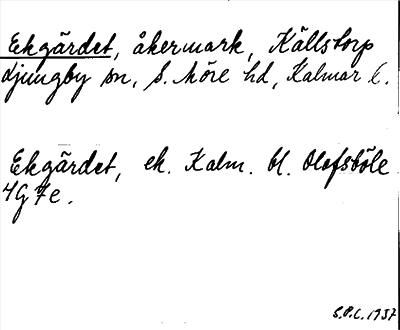 Ekgärdet, åkermark, Källstorp
Ljungby sn, S. Möre hd, Kalmar l.
Ekgärdet, ek. Kalm. bl. Olofsböle
4G 7e.
S.P.L. 1937